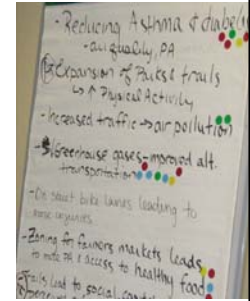 - Reducing Asthma & diabetes
- air quality, PA
Expansion of Parks & trails
↳ ↑ Physical Activity
- Increased traffic → air pollution
- Greenhouse gases - improved alt.
transportation
- On street bike lanes leading to
more injuries
- Zoning for farmers markets leads
to more PA & access to healthy food
Trails lead to social